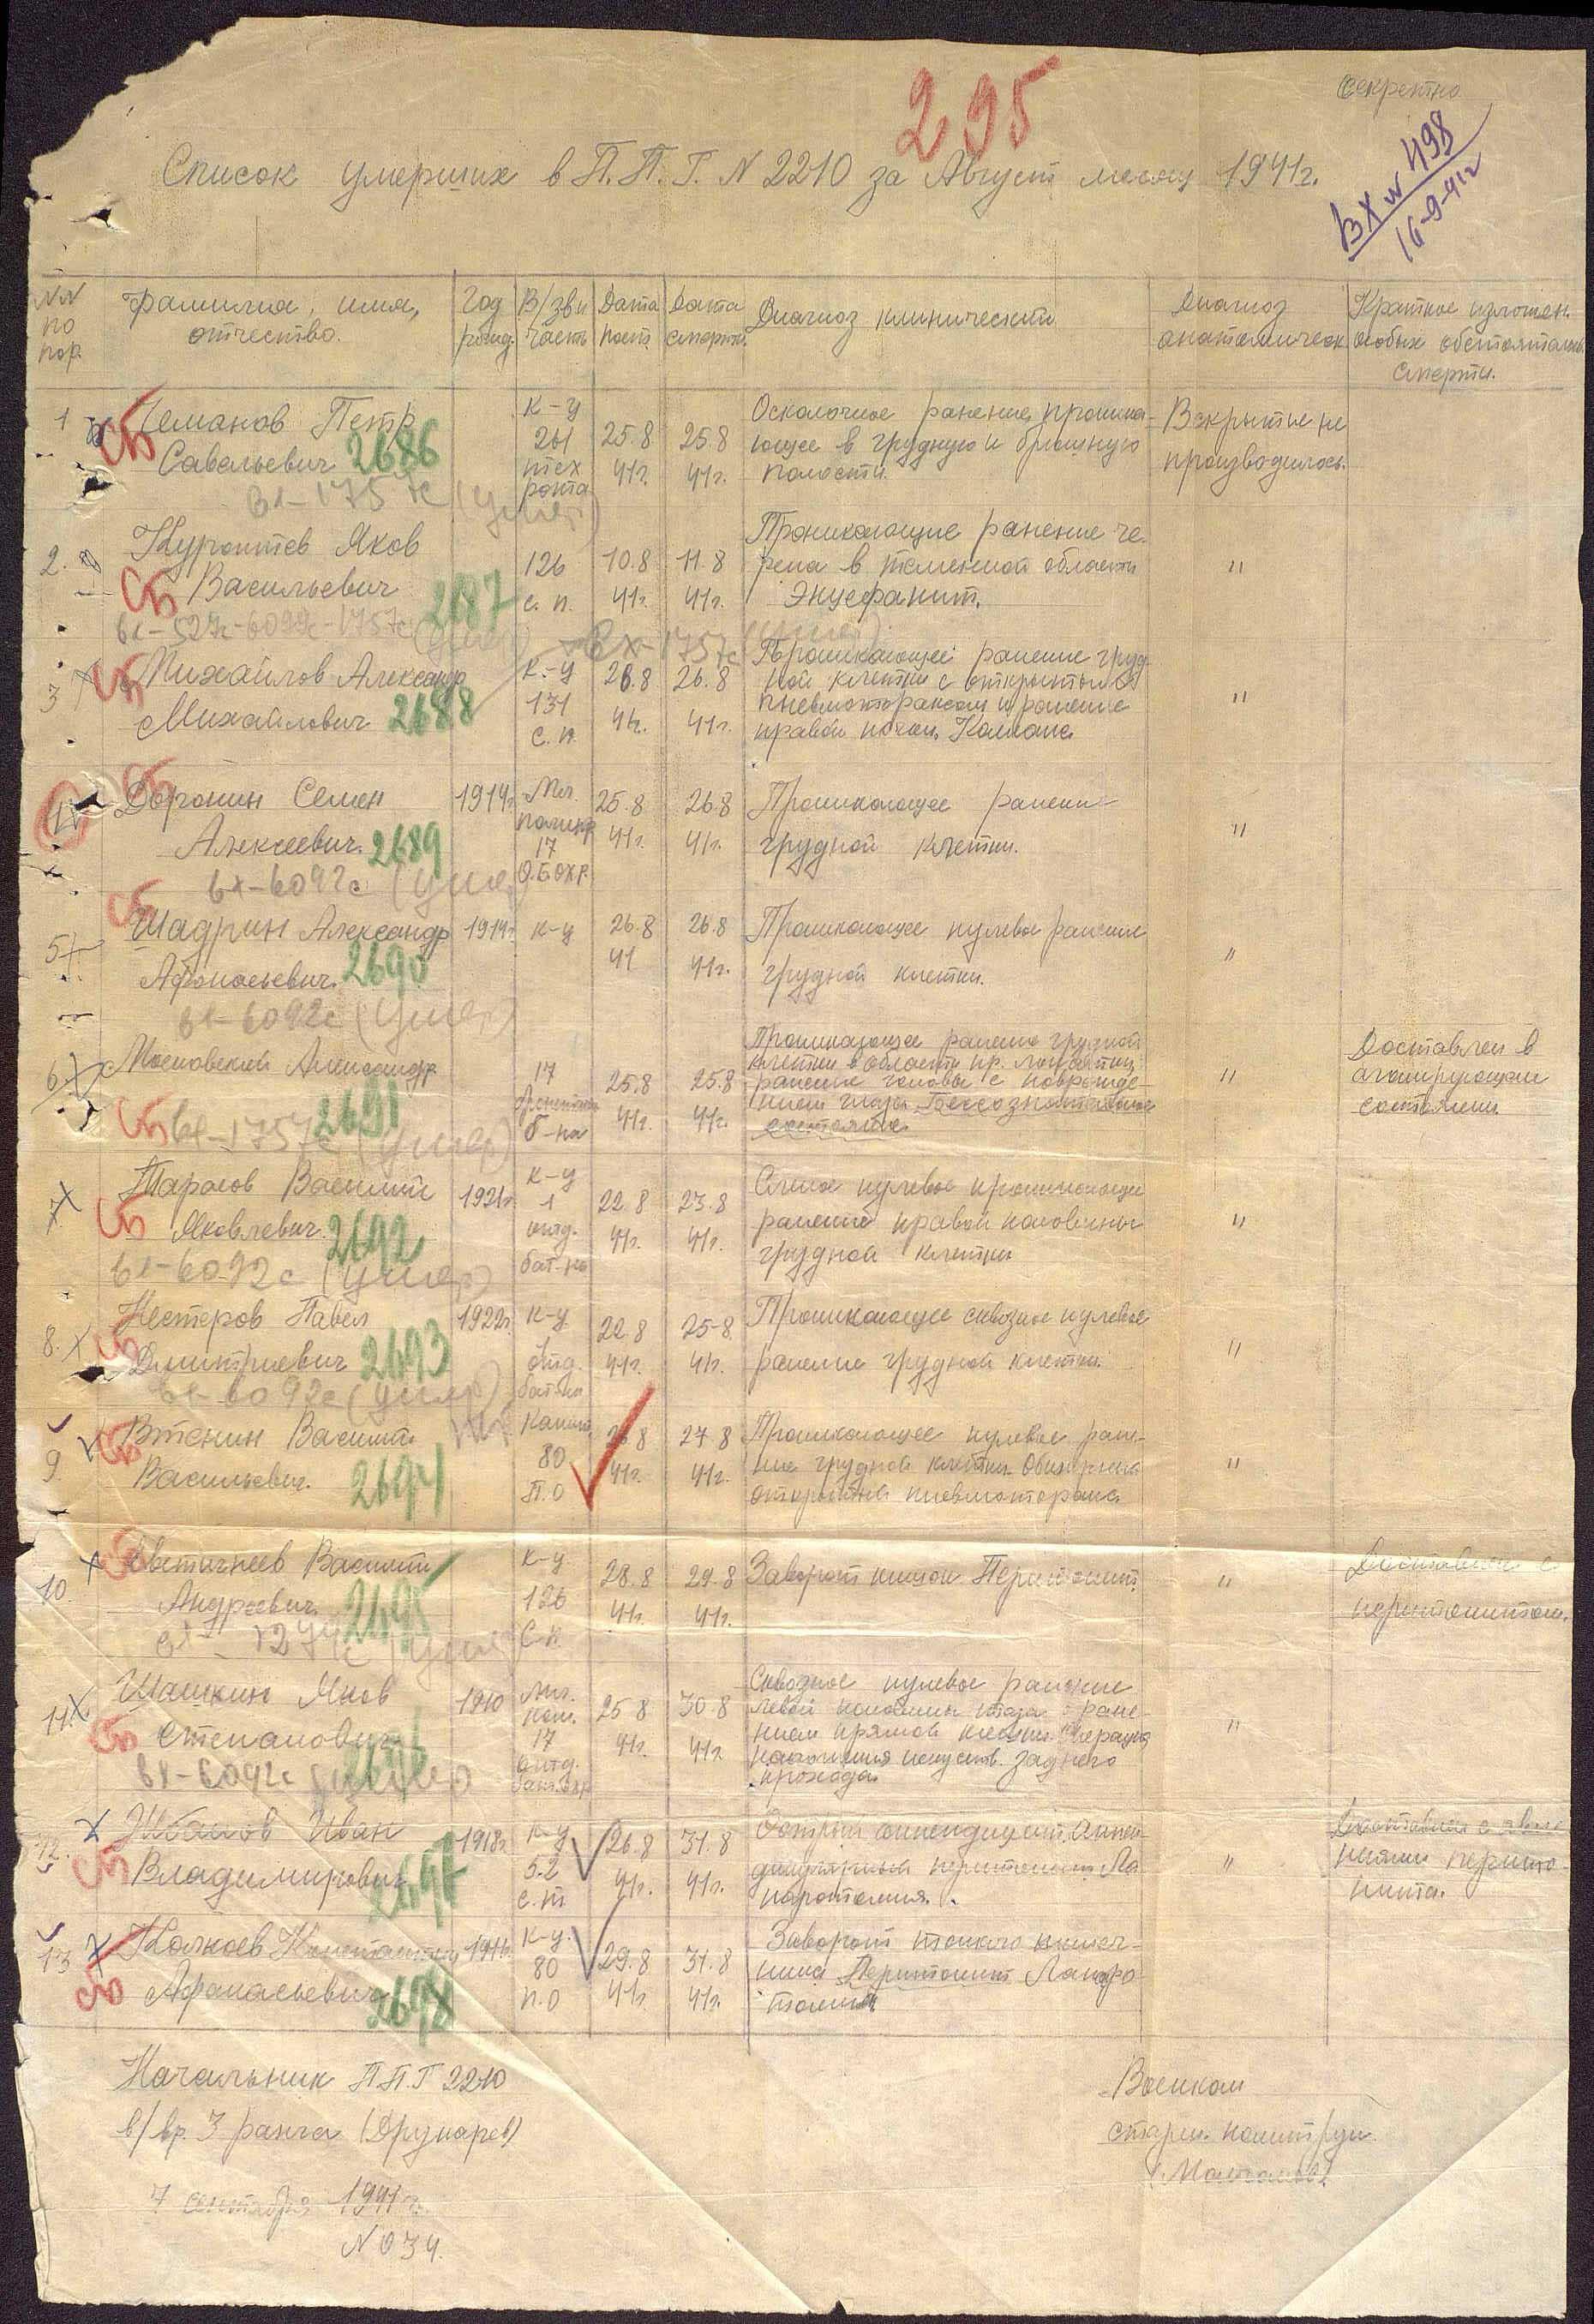 Секретно
295
Список умерших в П.П.Г. N 2210 за Август месяц 1941г.
Вх N 498
16-9-41г
NN по пор.
Фамилия, имя, отчество.
Год рожд.
В/зв и часть
Дата пост.
Дата смерти.
Диагноз клинический
Диагноз анатомическ
Краткое изложен. особых обстоятельств смерти.
1
СБ
Петр
Савельевич 2686
вх-175 (умер)
к-ц
261
тех
рота
25.8
41г.
25.8
41г.
Осколочное ранение проника-
ющее в грудную и брюшную
полости.
Вскрытие не
производилось.
2.
Яков
СБ Васильевич 2687
126
с.п.
10.8
41г.
11.8
41г.
Проникающие ранение че-
репа в теменной области
Энцефалит.
"
вх-1757с (умер)
3
СБ Михайлов Александр
Михайлович 2688
к-ц
131
с.п.
26.8
41г.
26.8
41г.
Проникающее ранение груд-
ной клетки с открытым
пневмотораксом и ранение
правой почки. Коллапс
"
4
СБ
Доронин Семен
Алексеевич. 2689
вх-6092с (умер)
1914г.
Мл.
политр
17
О.Б.ОХР.
25.8
41г.
26.8
41г.
Проникающее ранение
грудной клетки.
"
5
СБ
Шадрин Александр
Афанасьевич. 2690
вх-6092с (умер)
1919г.
к-ц
26.8
41
26.8
41г.
Проникающее пулевое ранение
грудной клетки.
"
6
Александр
СБ вх-1757с (умер) 2691
17
б-на
25.8
41г.
25.8
41г.
Проникающее ранение грудной
клетки в области пр. лопатки
ранение головы с поврежде-
нием глаза. Бессознательное
состояние.
"
Доставлен в
агонирующем
состоянии.
7
Тарасов Василий
СБ Яковлевич. 2692
вх-6092с (умер)
1921г.
к-ц
1
отд.
бат-на
22.8
41г.
23.8
41г.
Слепое пулевое проникающее
ранение правой половины
грудной клетки
"
8.
Нестеров Павел
СБ Дмитриевич 2693
вх-6092с (умер)
1922г.
к-ц
1
отд.
бат-на
22.8
41г.
25-8
41г.
Проникающее сквозное пулевое
ранение грудной клетки.
"
9
СБ Втенин Василий
Васильевич. 2694
80
П.О
8
41г.
27.8
41г.
Проникающее пулевое ране-
ние грудной клетки. Обширный
открытый пневмоторакс.
"
10.
СБ Василий
Андреевич. 2695
(умер)
к-ц
126
с.п.
28.8
41г.
29.8
41г.
Заворот кишок. Перитонит.
"
Доставлен с
перитонитом.
11.
Шашкин Яков
СБ Степанович 2696
вх-6092с (умер)
1910
Мл.
ком.
17
отд.
25.8
41г.
30.8
41г.
Сквозное пулевое ранение
левой половины таза с ране-
нием прямой кишки. Операция
наложения искуств. заднего
прохода.
"
12.
Иван
СБ Владимирович 2697
1918г.
к-ц
52
с.п
26.8
41г.
31.8
41г.
Острый аппендицит. Аппен-
дикулярный перитонит. Ла
паротомия.
"
Доставлен с явле-
ниями перито-
нита.
13
Константин
СБ Афанасьевич 2698
к-ц.
80
п.о
29.8
41г.
31.8
41г.
Заворот тонкого кишеч-
ника Перитонит Лапаро
томия
Начальник ППГ 2210
в/вр. 3 ранга
7 сентября 1941г.
N 034.
Военком
старш. политрук